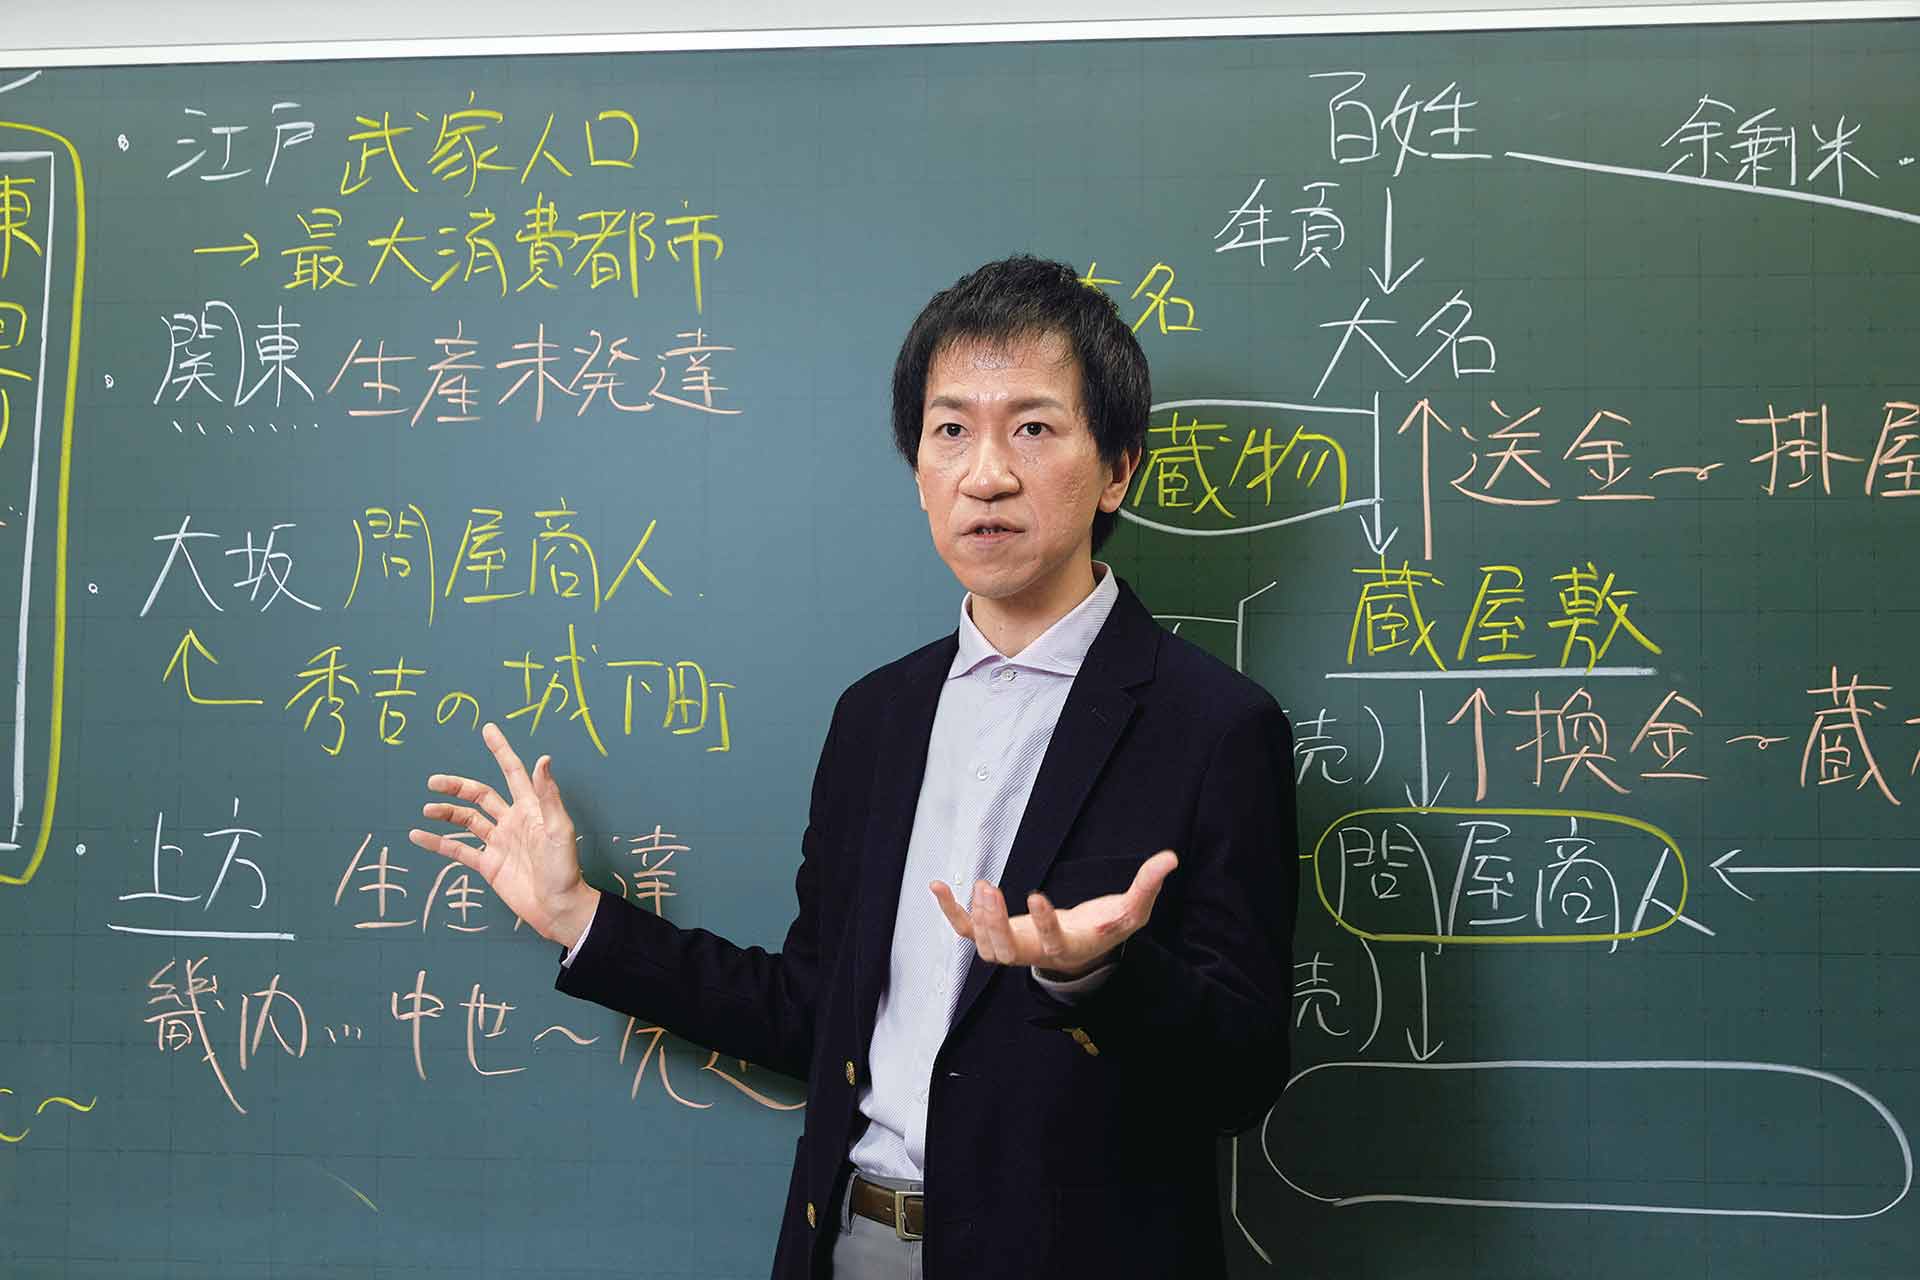 東
・江戸 武家人口
→最大消費都市
・関東 生産未発達
・大坂 問屋商人
秀吉の城下町
・上方 生産 達
畿内…中世〜
百姓 余剰米
年貢
大名
大名
蔵物
送金〜掛屋
蔵屋敷
売)
換金〜蔵
問屋商人
売)